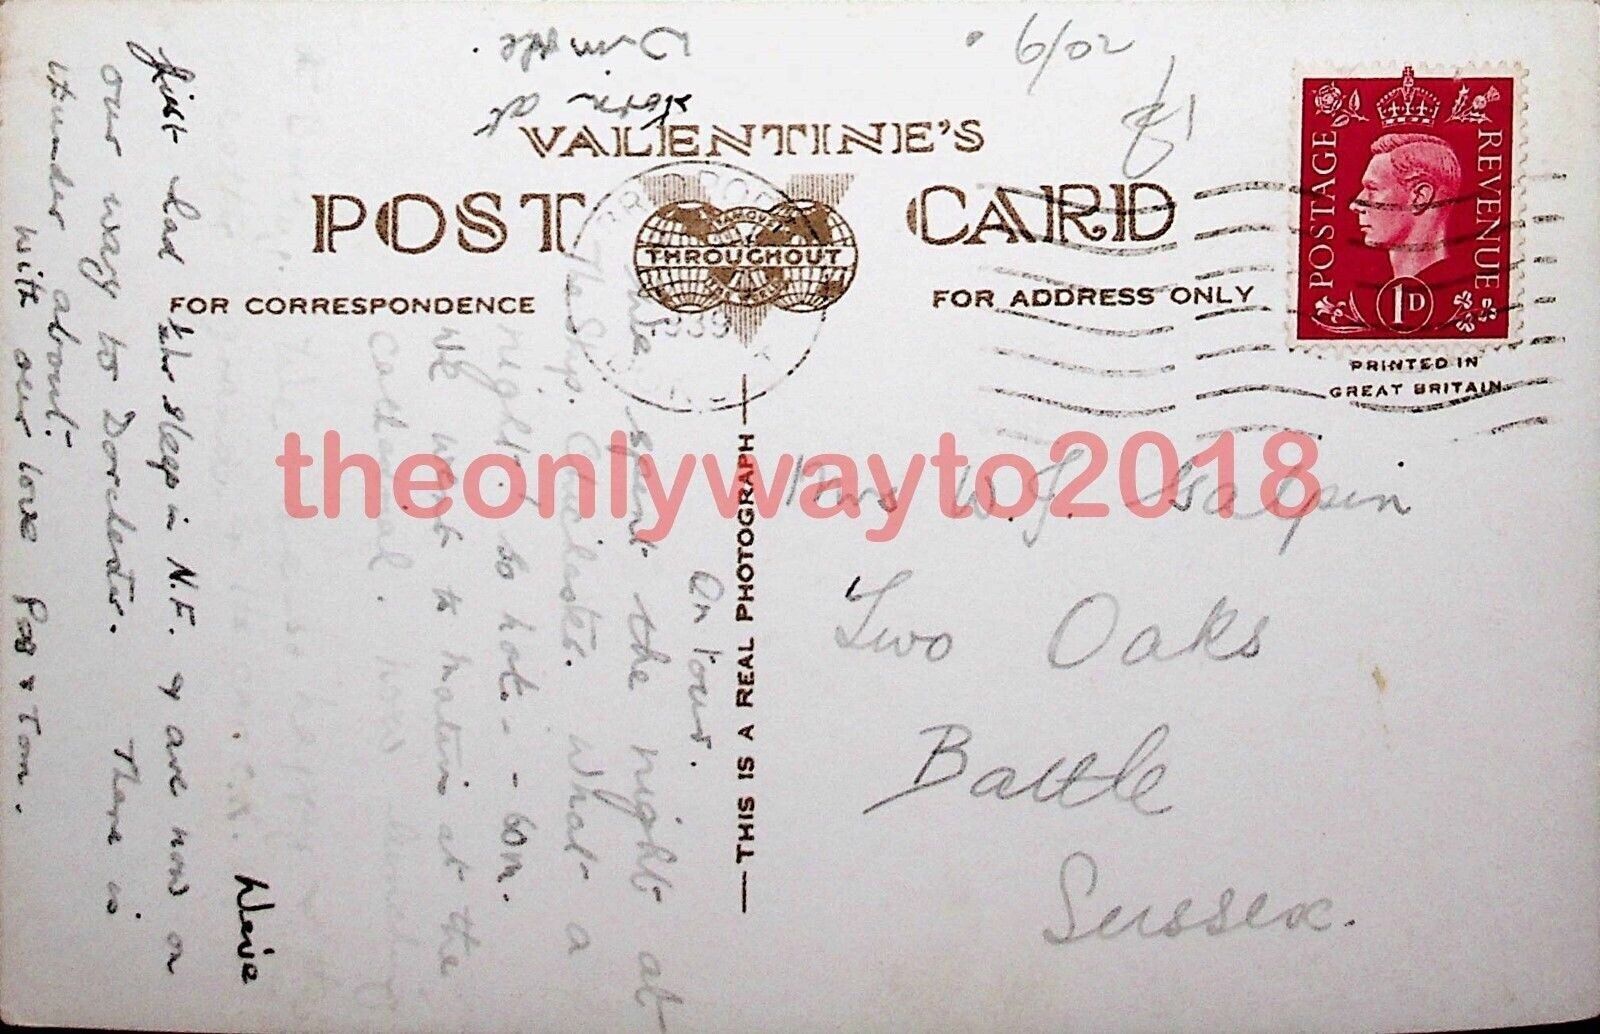 6/02
£1
VALENTINE'S
POST CARD
THROUGHOUT
FOR CORRESPONDENCE
FOR ADDRESS ONLY
POSTAGE
REVENUE
1D
PRINTED IN
GREAT BRITAIN
1939
THIS IS A REAL PHOTOGRAPH
theonlywayto2018
Mrs W. J. Galpin
Two Oaks
Battle
Sussex.
On tour.
We spent the night at
The Ship. Chichester. What a
night! So hot. --
We went to matins at the
Cathedral.
sleep in N.F. & are now on
our way to Dorchester. There is
thunder about.
With our love
& Tom.
at